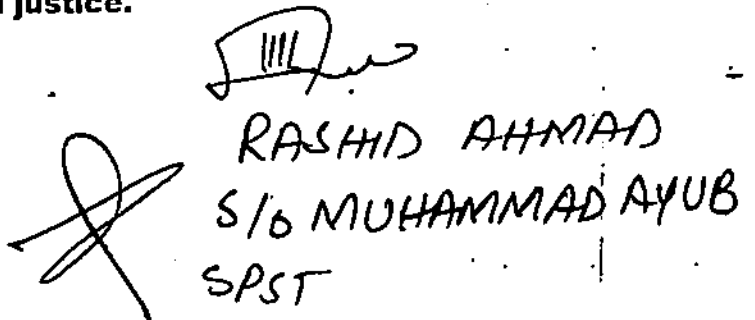 justice.
RASHID AHMAD
S/o MUHAMMAD AYUB
SPST